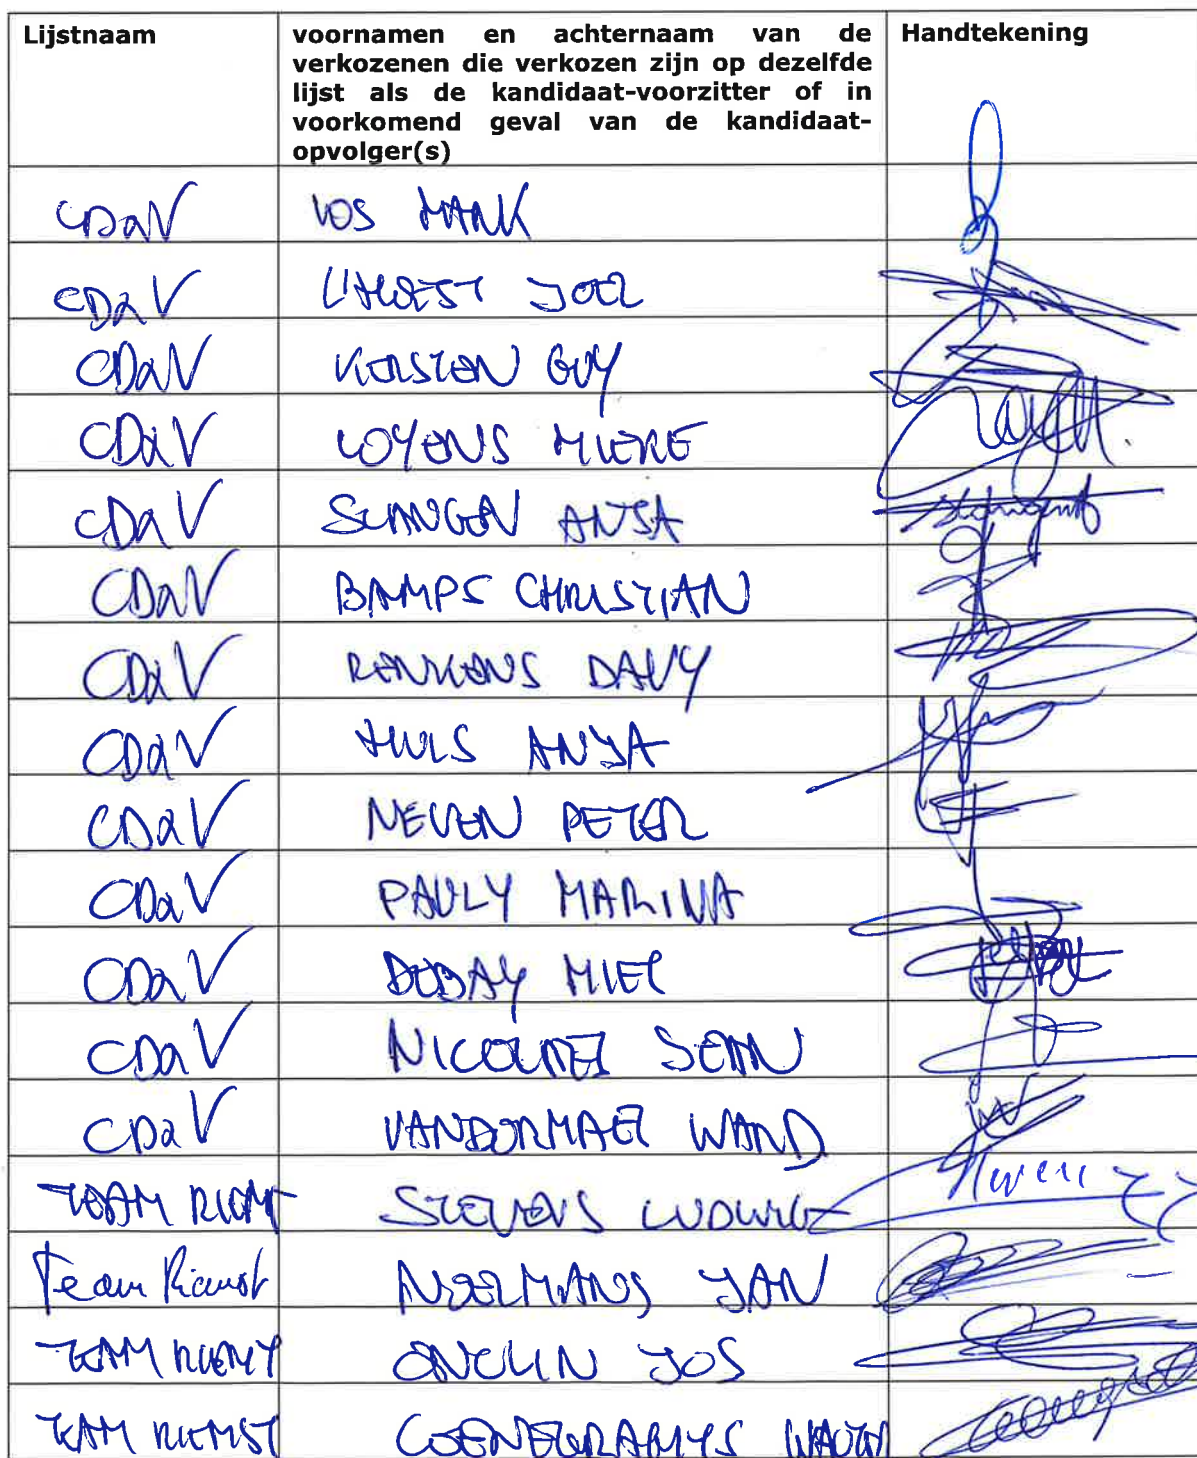 Lijstnaam
voornamen en achternaam van de
verkozenen die verkozen zijn op dezelfde
lijst als de kandidaat-voorzitter of in
voorkomend geval van de kandidaat-
opvolger(s)
Handtekening
CD&V VOS MARK
CD&V L'HOEST JOEL
CD&V KERSTEN GUY
CD&V LOYENS MIEKE
CD&V SLANGEN ANJA
CD&V BAMPS CHRISTIAN
CD&V RENKENS DAVY
CD&V HULS ANJA
CD&V NEVEN PETER
CD&V PAULY MARINA
CD&V MIEL
CD&V NICOLAES JEAN
CD&V VANDORMAEL WARD
TEAM RIEMST STEVENS LUDWIG
Team Riemst NOELMANS JAN
TEAM RIEMST ONCLIN JOS
TEAM RIEMST COENEGRACHTS